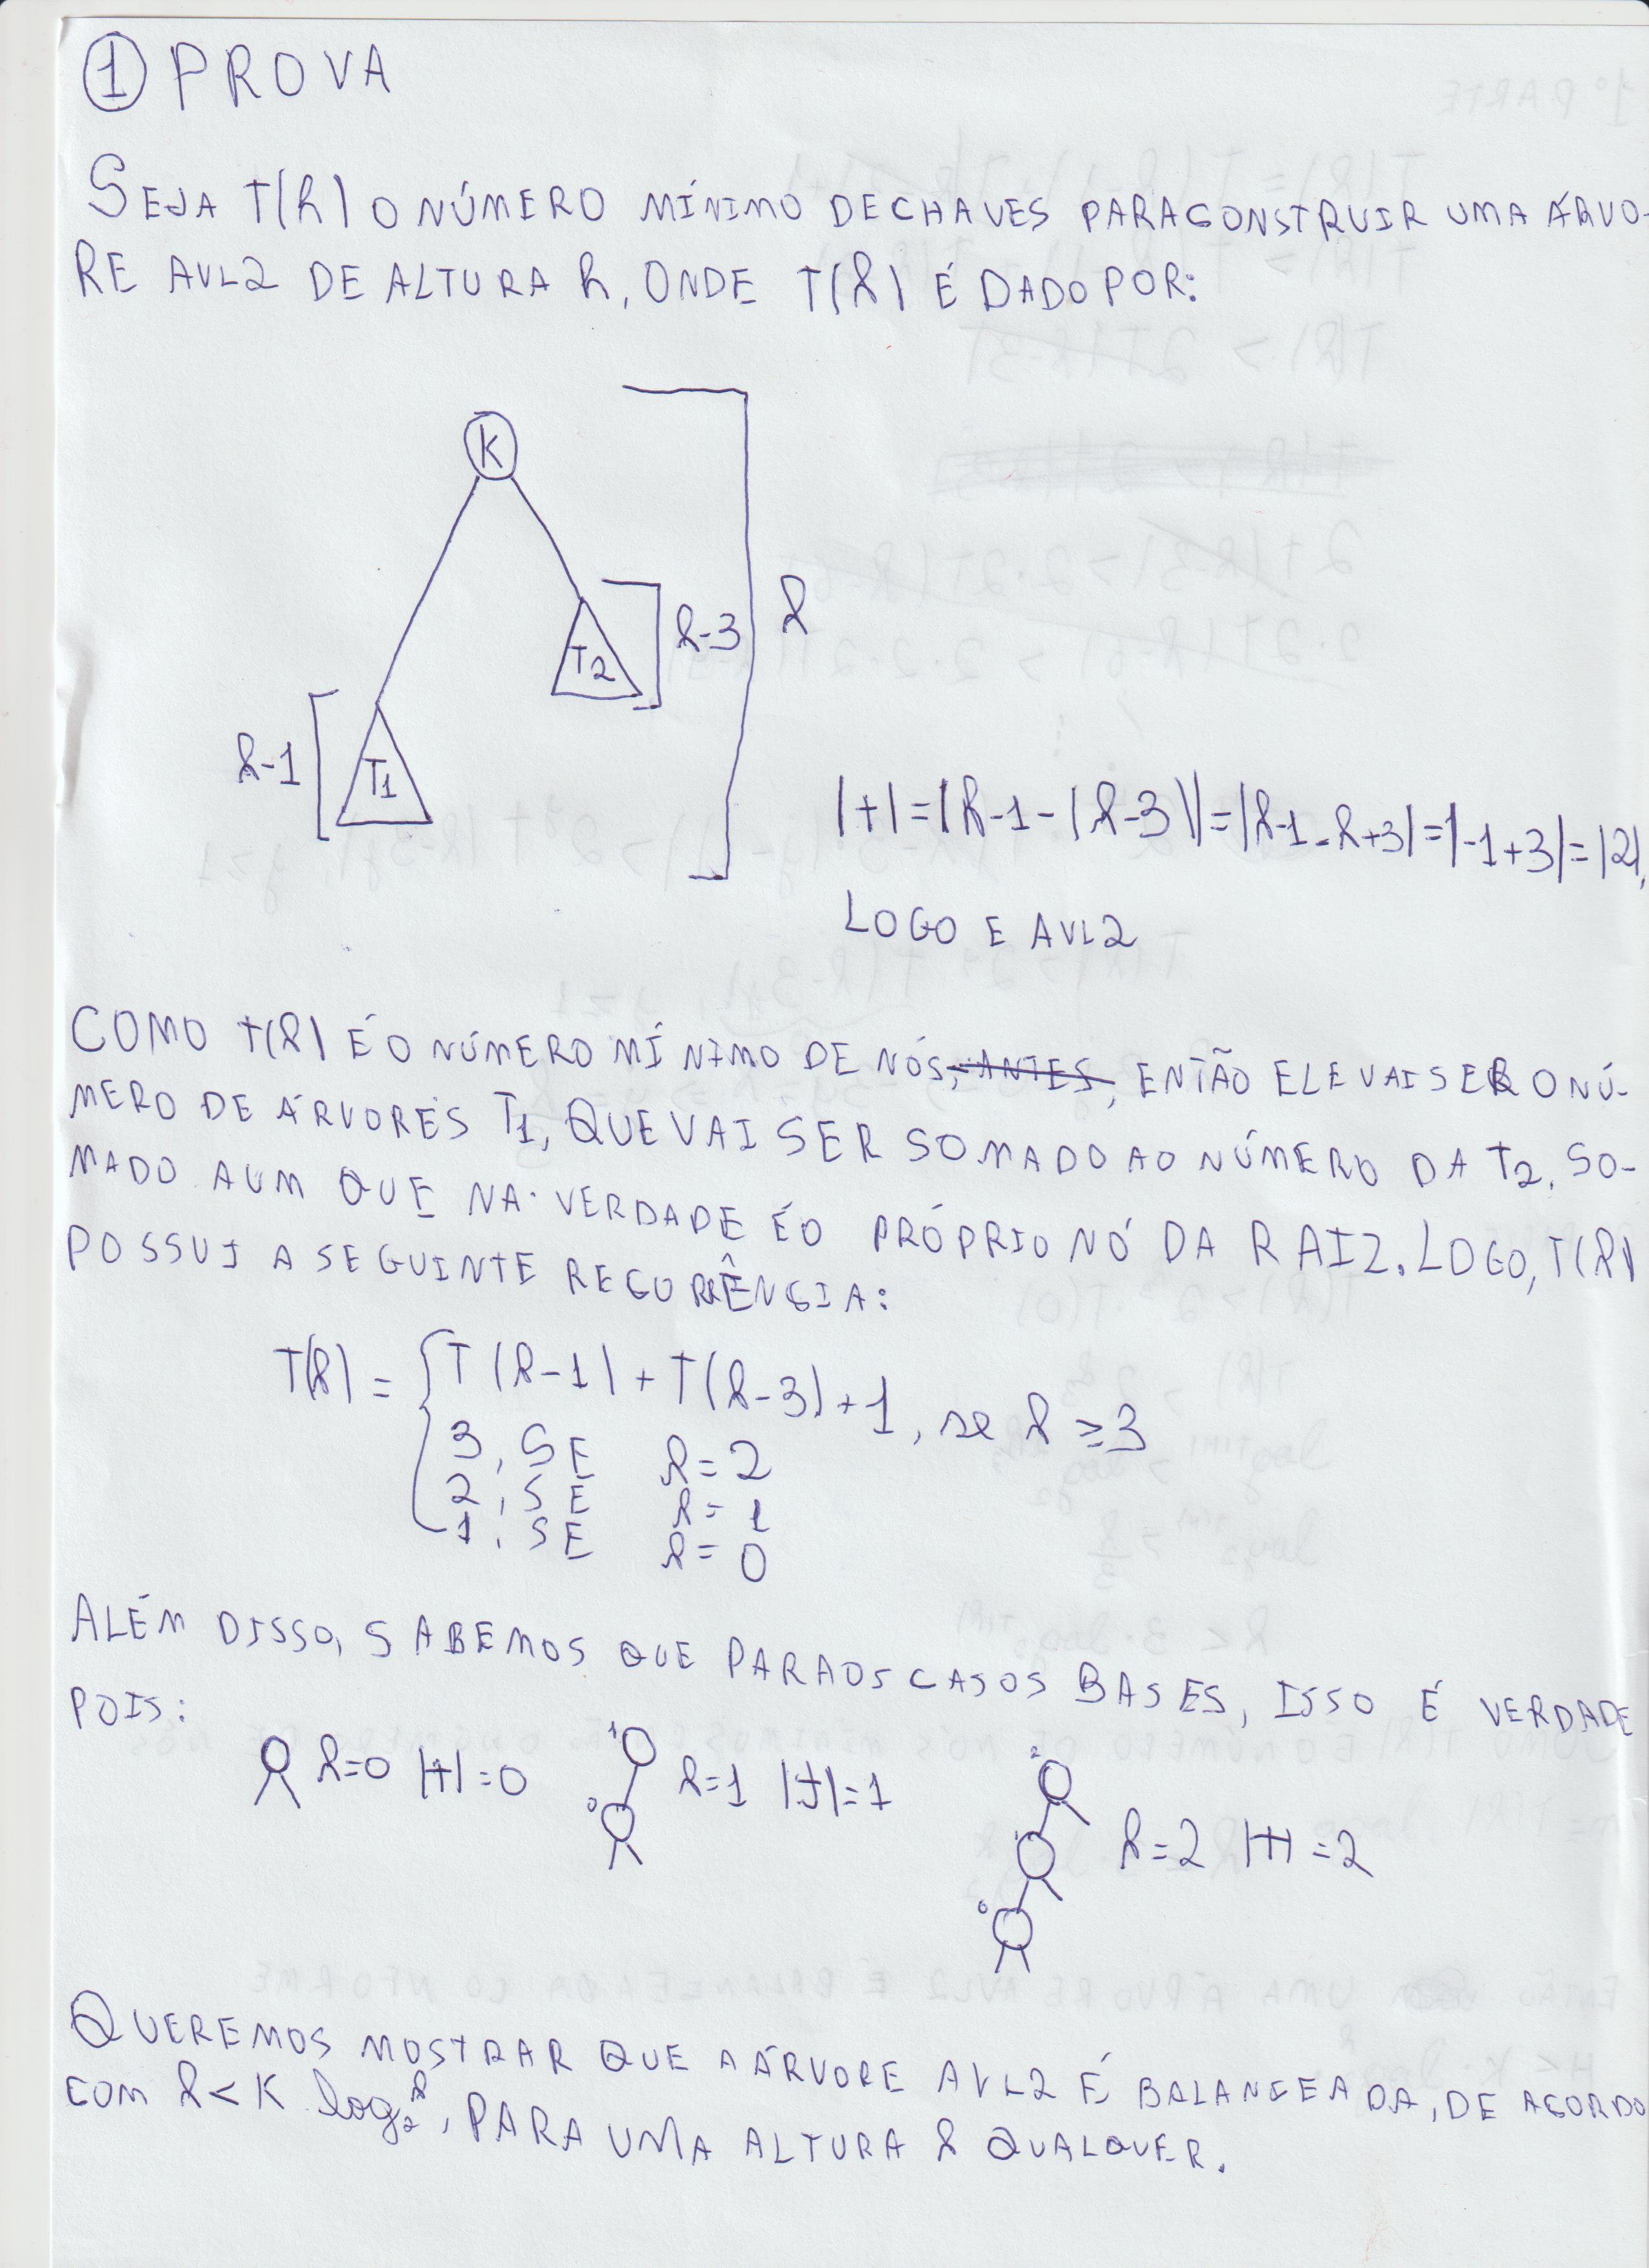 ① PROVA
SEJA T(h) O NÚMERO MÍNIMO DE CHAVES PARA CONSTRUIR UMA ÁRVO-
RE AVL2 DE ALTURA h, ONDE T(h) É DADO POR:
K
h
h-3
T2
h-1
T1
|+| = |h-1-(h-3)| = |h-1-h+3| = |-1+3| = |2|,
LOGO E AVL2
COMO T(h) É O NÚMERO MÍNIMO DE NÓS, ANTES, ENTÃO ELE VAI SER O NÚ-
MERO DE ÁRVORES T1, QUE VAI SER SOMADO AO NÚMERO DA T2, SO-
MADO A UM QUE NA VERDADE É O PRÓPRIO NÓ DA RAIZ. LOGO, T(h)
POSSUI A SEGUINTE RECORRÊNCIA:
T(h) = { T(h-1) + T(h-3) + 1, se h ≥ 3
3, SE h = 2
2, SE h = 1
1, SE h = 0
ALÉM DISSO, SABEMOS QUE PARA OS CASOS BASES, ISSO É VERDADE
POIS:
h=0 |+|=0 1 0 h=1 |+|=1 2 1 0 h=2 |+|=2
QUEREMOS MOSTRAR QUE A ÁRVORE AVL2 É BALANCEADA, DE ACORDO
COM h < K log₂^h, PARA UMA ALTURA h QUALQUER.